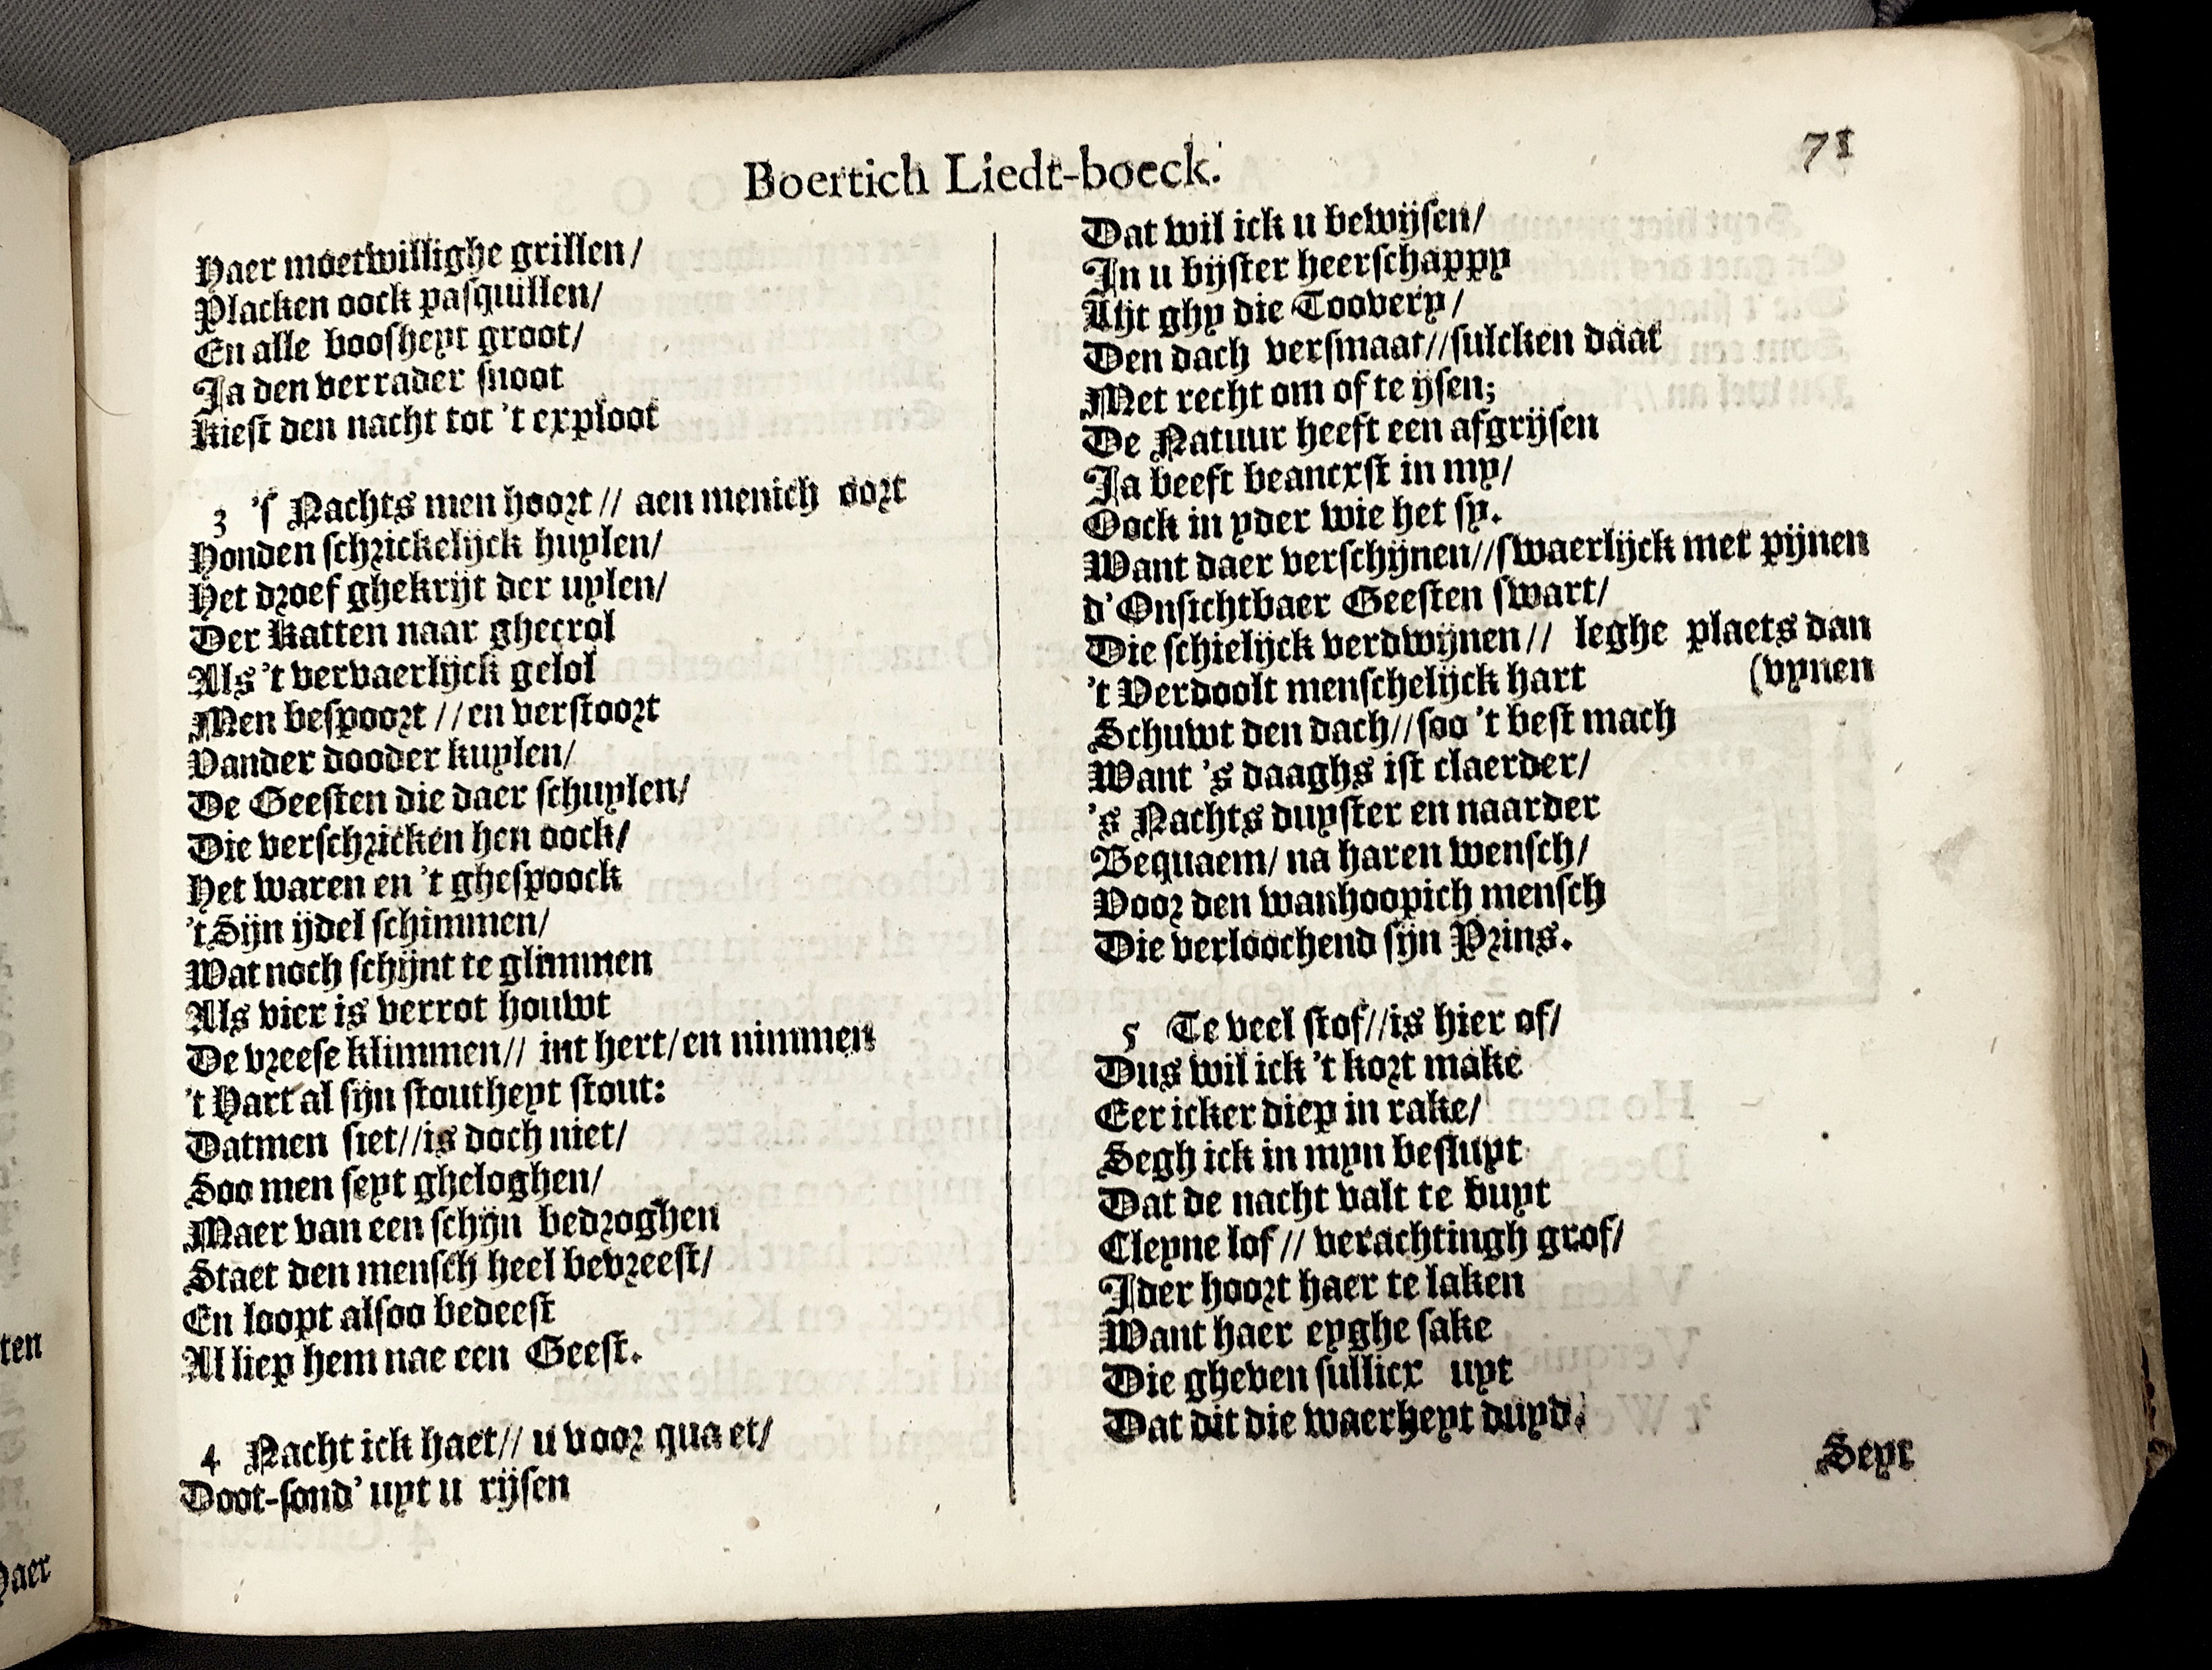 Boertich Liedt-boeck. 71
Haer moetwillighe grillen/
Placken oock pasquillen/
En alle boosheyt groot/
Ja den verrader snoot
Kiest den nacht tot 't exploot
3 's Nachts men hoort // aen menich oort
Honden schrickelijck huylen/
Het droef ghekrijt der uylen/
Der Katten naar ghecrol
Als 't vervaerlijck gelol
Men bespoort // en verstoort
Vander dooder kuylen/
De Geesten die daer schuylen/
Die verschricken hen oock/
Het waren en 't ghespoock
't Sijn ijdel schimmen/
Wat noch schijnt te glimmen
Als vier is verrot houwt
De vreese klimmen// int hert/en nimmen
't Hart al sijn stoutheyt stout:
Datmen siet//is doch niet/
Soo men seyt gheloghen/
Maer van een schijn bedroghen
Staet den mensch heel bevreest/
En loopt alsoo bedeest
Al liep hem nae een Geest.
4 Nacht ick haet// u voor quaet/
Doot-sond' uyt u rijsen
Dat wil ick u bewijsen/
In u bijster heerschappy
Lijt ghy die Toovery/
Den dach versmaat//sulcken daat
Met recht om of te ijsen;
De Natuur heeft een afgrijsen
Ja beeft beancxst in my/
Oock in yder wie het sy.
Want daer verschijnen//swaerlijck met pijnen
d'Onsichtbaer Geesten swart/
Die schielijck verdwijnen// leghe plaets dan
't Verdoolt menschelijck hart (vynen
Schuwt den dach//soo 't best mach
Want 's daaghs ist claerder/
's Nachts duyster en naarder
Bequaem/ na haren wensch/
Voor den wanhoopich mensch
Die verloochend sijn Prins.
5 Te veel stof//is hier of/
Dus wil ick 't kort make
Eer icker diep in rake/
Segh ick in myn besluyt
Dat de nacht valt te buyt
Cleyne lof // verachtingh grof/
Ider hoort haer te laken
Want haer eyghe sake
Die gheven sullicx uyt
Dat dit die waerheyt duyd.
Seyt
ten
Haer